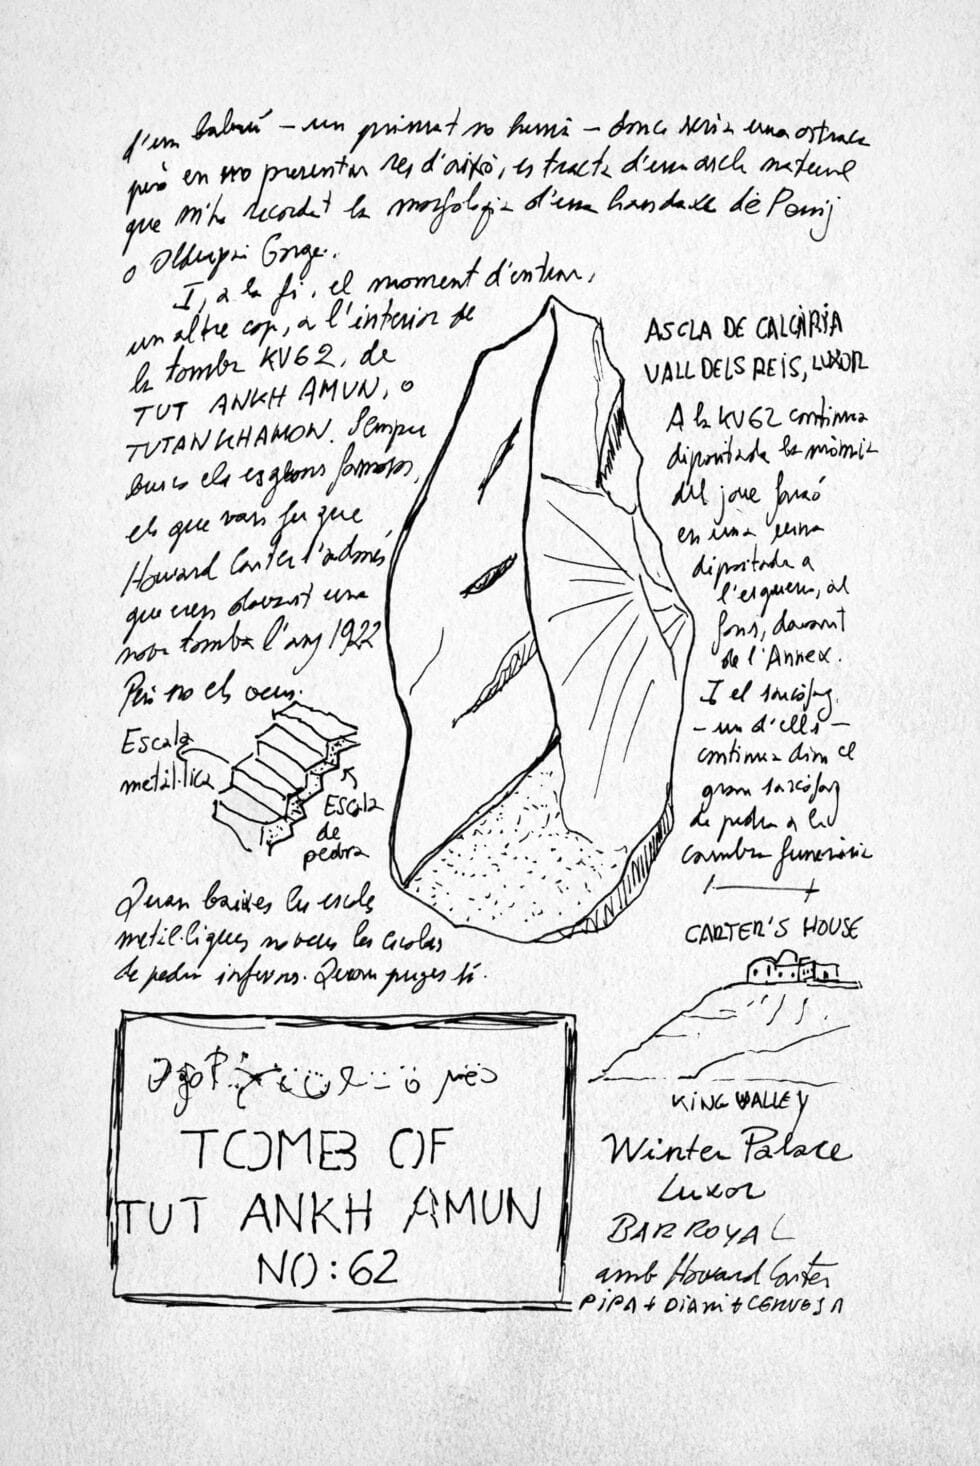 d'un babuí – un primat no humà – doncs seria una ostraca
però en no presentar res d'això, es tracta d'una ascla natural
que m'ha recordat la morfologia d'una handaxe de Peninj
o Olduvai Gorge.
I, a la fi, el moment d'entrar,
un altre cop, a l'interior de
la tomba KV62, de
TUT ANKH AMUN, o
TUTANKHAMON. Sempre
busco els esglaons famosos,
els que van fer que
Howard Carter l'
que eren davant una
nova tomba l'any 1922
Però no els veus.
Escala
metàl·lica
Escala
de
pedra
Quan baixes les escales
metàl·liques no veus les escales
de pedra inferiors. Quan puges sí.
ASCLA DE CALCÀRIA
VALL DELS REIS, LUXOR
A la KV62 continua
dipositada la mòmia
del jove faraó
en una urna
dipositada a
l'esquerra, al
fons, davant
de l'Annex.
I el sarcòfag
– un d'ells –
continua dins el
gran sarcòfag
de pedra a la
cambra funerària
CARTER'S HOUSE
KING VALLEY
Winter Palace
Luxor
BAR ROYAL
amb Howard Carter
PIPA + DIARI + CERVESA
TOMB OF
TUT ANKH AMUN
NO: 62